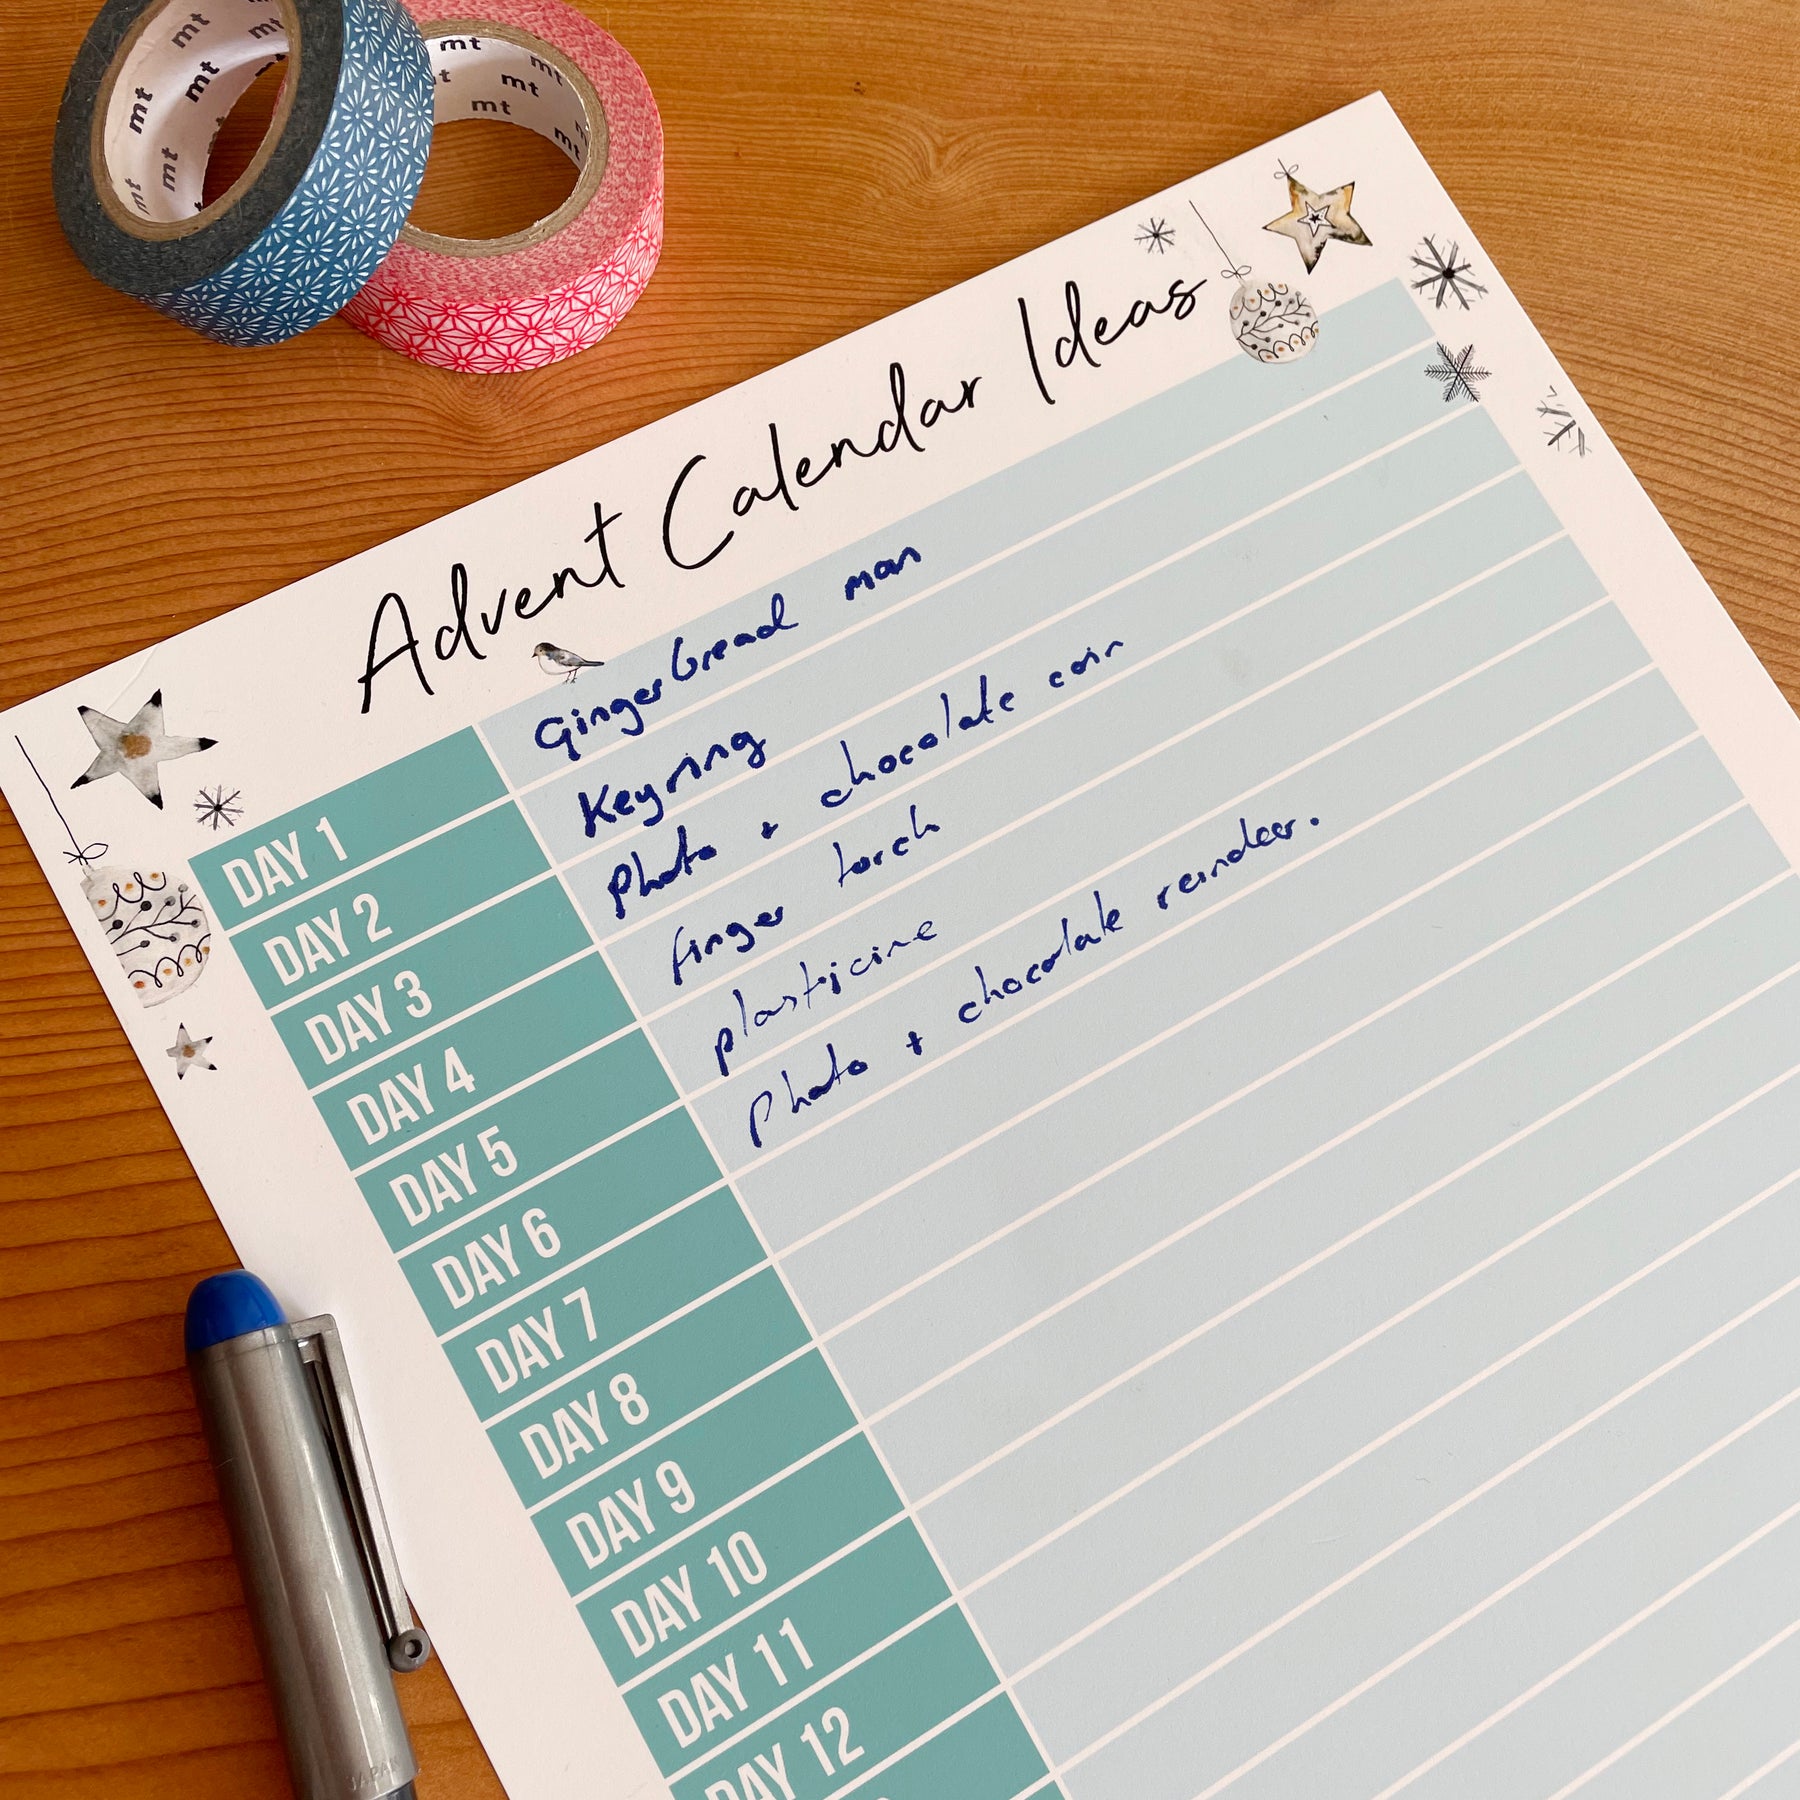 mt mt mt mt mt
mt mt mt mt mt
Advent Calendar Ideas
DAY 1 Gingerbread man
DAY 2 Keyring
DAY 3 Photo + chocolate coin
DAY 4 finger torch
DAY 5 plasticine
DAY 6 Photo + chocolate reindeer.
DAY 7
DAY 8
DAY 9
DAY 10
DAY 11
DAY 12
JAPAN